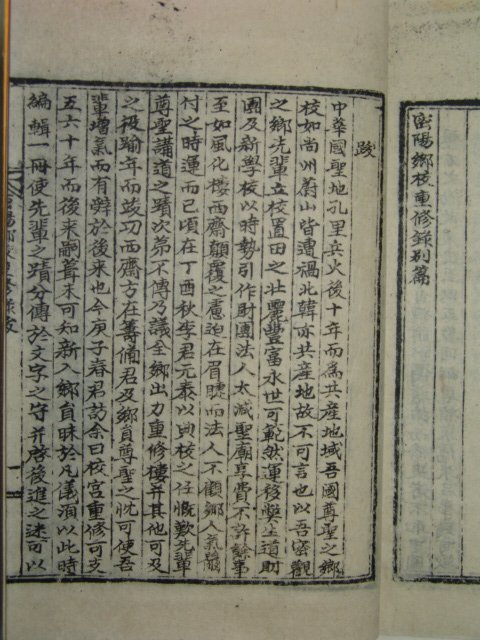 密陽鄉校重修錄別篇
跋
中華國聖地孔里兵火後十年而爲共産地域吾國尊聖之鄉
校如尚州蔚山皆遭禍北韓亦共産地故不可言也以吾密觀
之鄉先輩立校置田之壯麗豊富永世可範然運移學生道財
團及新學校以時勢引作財團法人太減聖廟享費不許餘事
至如風化樓西齋顚覆之慮迫在眉睫而法人不顧鄉人氣闒
付之時運而已頃在丁酉秋李君元泰以典校之任慨歎先輩
尊聖講道之蹟次第不傳乃議全鄉出力重修樓并其他可及
之役踰年而竣功西齋方在籌備君及鄉員尊聖之忱可使吾
輩增氣而有辭於後來也今庚子春君訪余曰校宮重修可支
五六十年而後来嗣葺未可知新入鄉員昧於凡儀須以此時
編輯一冊使先輩之蹟分傳於文字之守并啓後進之迷可以
一